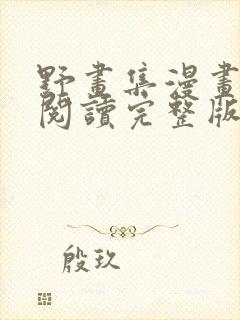 野畫集漫畫
閱讀完整版
殷玖